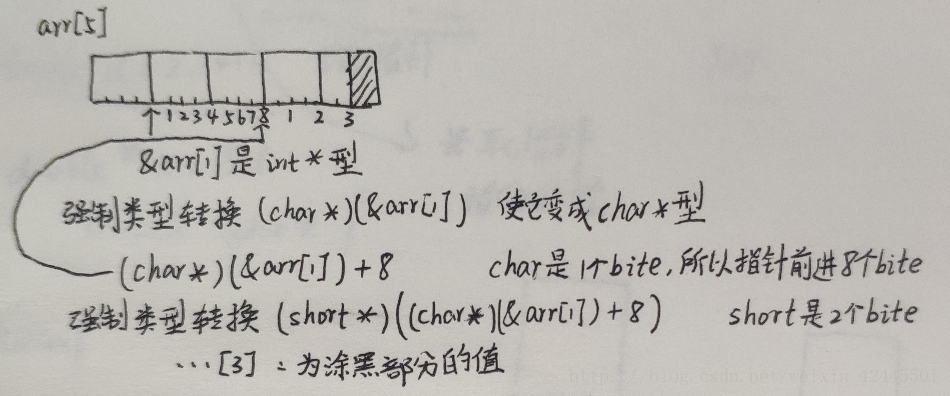 arr[5]
1 2 3 4 5 6 7 8 1 2 3
&arr[1]是int*型
强制类型转换 (char*)(&arr[1]) 使它变成char*型
(char*)(&arr[1])+8 char是1个bite,所以指针前进8个bite
强制类型转换 (short*)((char*)(&arr[1])+8) short是2个bite
...[3] :为涂黑部分的值